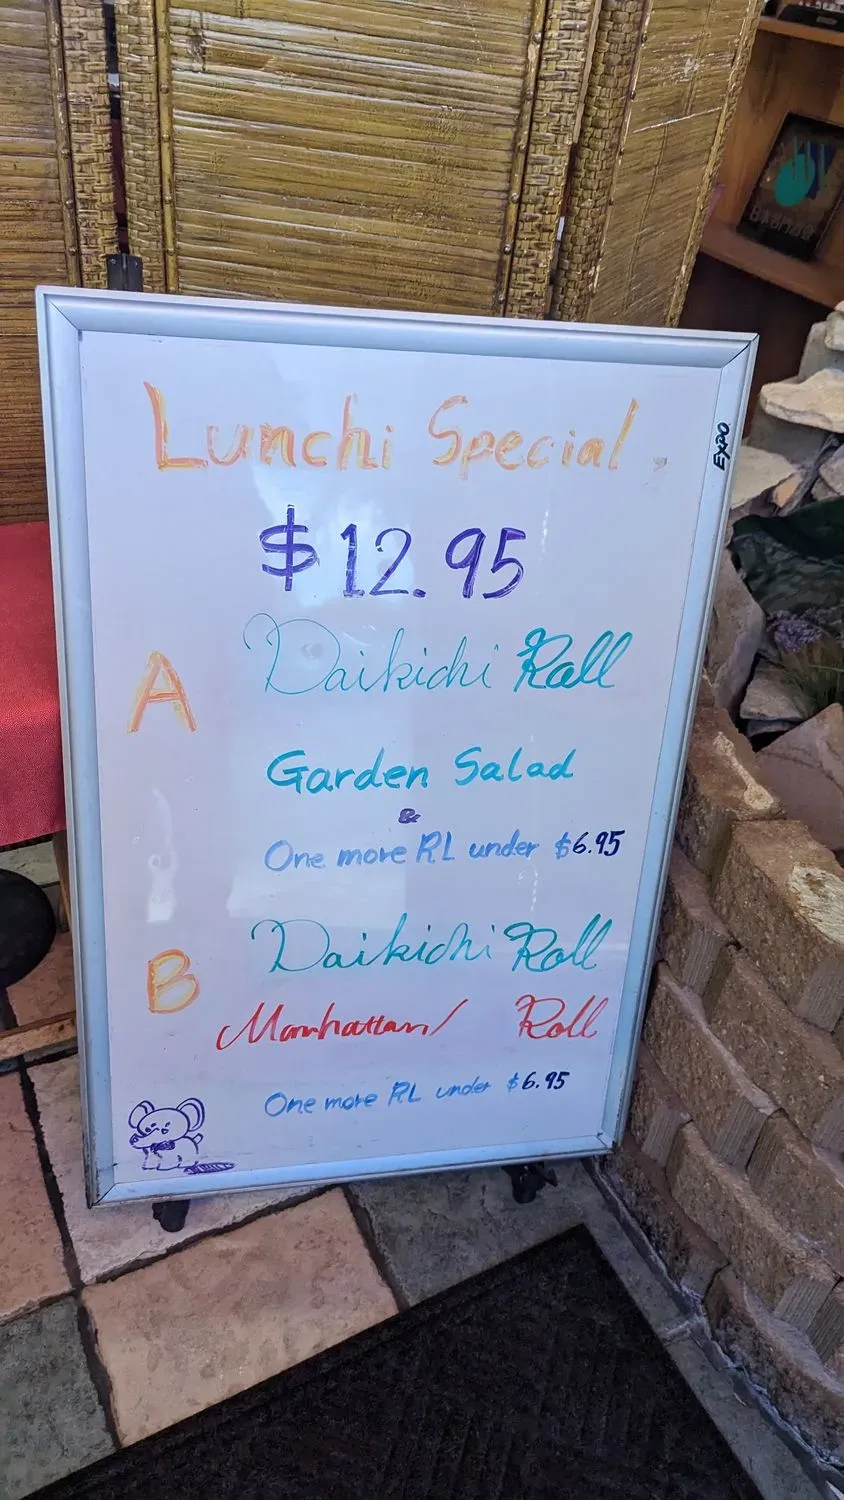 Lunchi Special
EXPO
$12.95
A
Daikichi Roll
Garden Salad
&
One more RL under $6.95
B
Daikichi Roll
Manhattan Roll
One more RL under $6.95